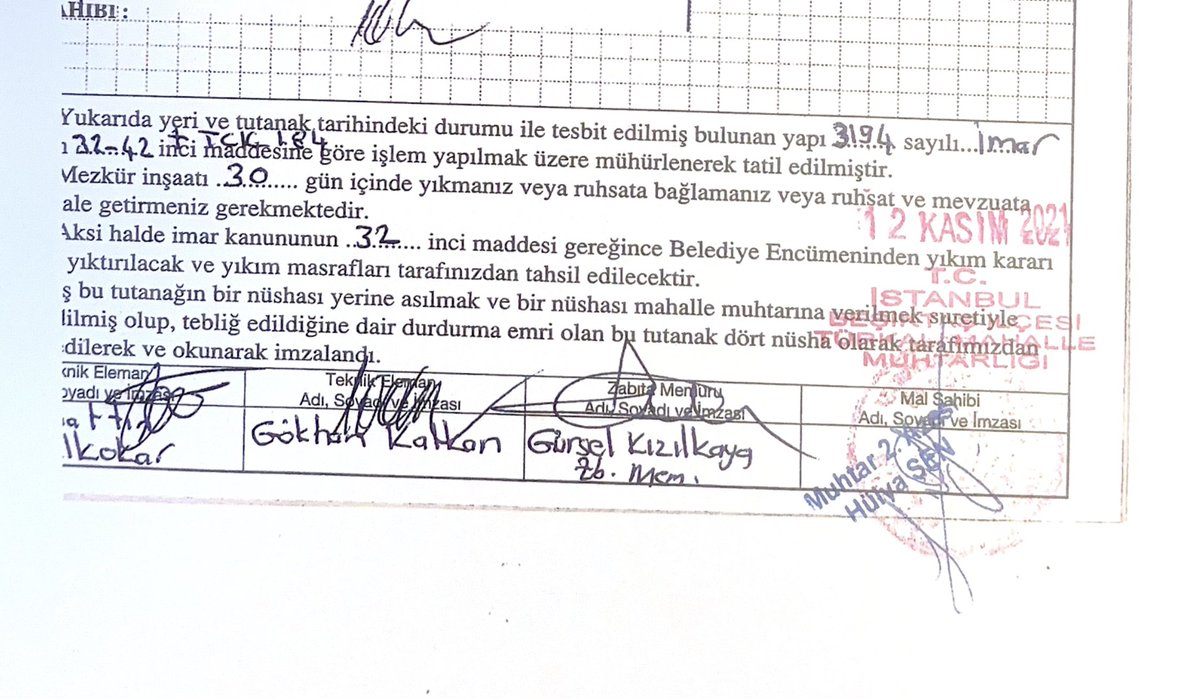 AHIBI:
Yukarıda yeri ve tutanak tarihindeki durumu ile tesbit edilmiş bulunan yapı 3194 sayılı...İmar
+ TCK 184
ı 32-42 inci maddesine göre işlem yapılmak üzere mühürlenerek tatil edilmiştir.
Mezkür inşaatı ..30........ gün içinde yıkmanız veya ruhsata bağlamanız veya ruhsat ve mevzuata
ale getirmeniz gerekmektedir.
12 KASIM 2021
Aksi halde imar kanununun ..32..... inci maddesi gereğince Belediye Encümeninden yıkım kararı
yıktırılacak ve yıkım masrafları tarafınızdan tahsil edilecektir.
T.C.
İSTANBUL
ş bu tutanağın bir nüshası yerine asılmak ve bir nüshası mahalle muhtarına verilmek suretiyle
BEŞİKTAŞ İLÇESİ
lilmiş olup, tebliğ edildiğine dair durdurma emri olan bu tutanak dört nüsha olarak tarafımızdan
MAHALLE
MUHTARLIĞI
edilerek ve okunarak imzalandı.
knik Eleman
oyadı ve İmzası
Ilkokar
Teknik Eleman
Adı, Soyadı ve İmzası
Gökhan Kalkan
Zabıta Memuru
Adı, Soyadı ve İmzası
Gürsel Kızılkaya
Zb. Mem.
Mal Sahibi
Adı, Soyadı ve İmzası
Muhtar 2.
Hülya ŞEN